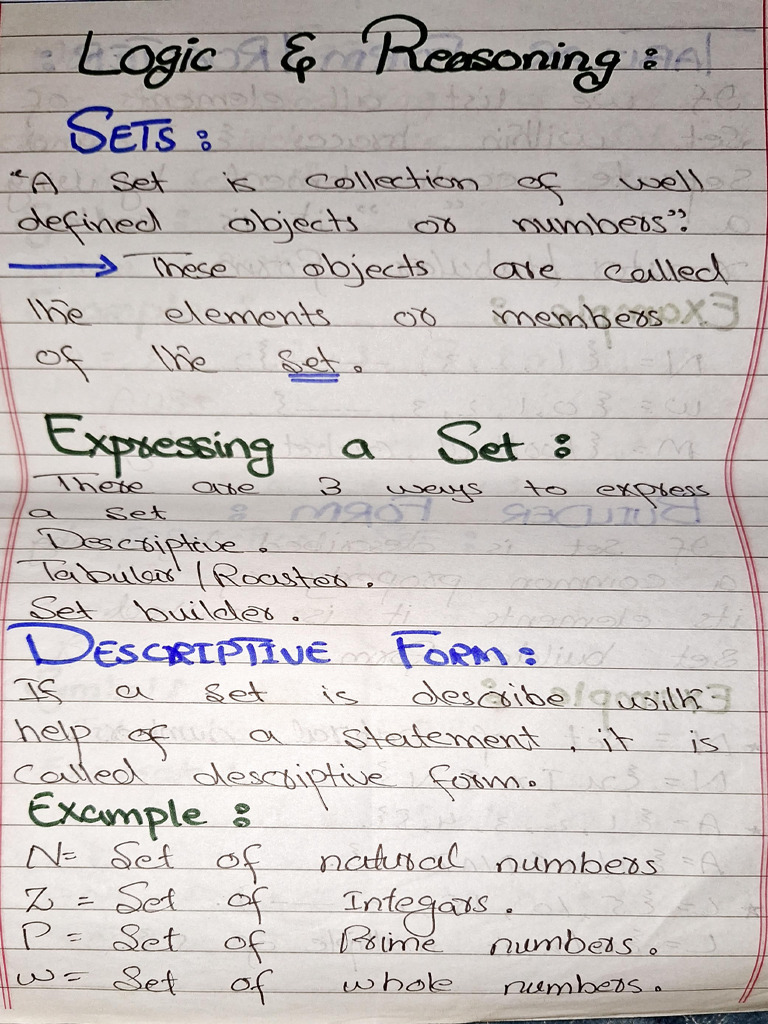 Logic & Reasoning :
SETS :
"A Set is collection of well
defined objects or numbers".
→ These objects are called
the elements or members
of the Set.
Expressing a Set :
There are 3 ways to express
a set
Descriptive.
Tabular / Roaster.
Set builder.
DESCRIPTIVE FORM :
If a set is describe with
help of a statement, it is
called descriptive form.
Example :
N= Set of natural numbers
Z = Set of Integars.
P = Set of Prime numbers.
W= Set of whole numbers.